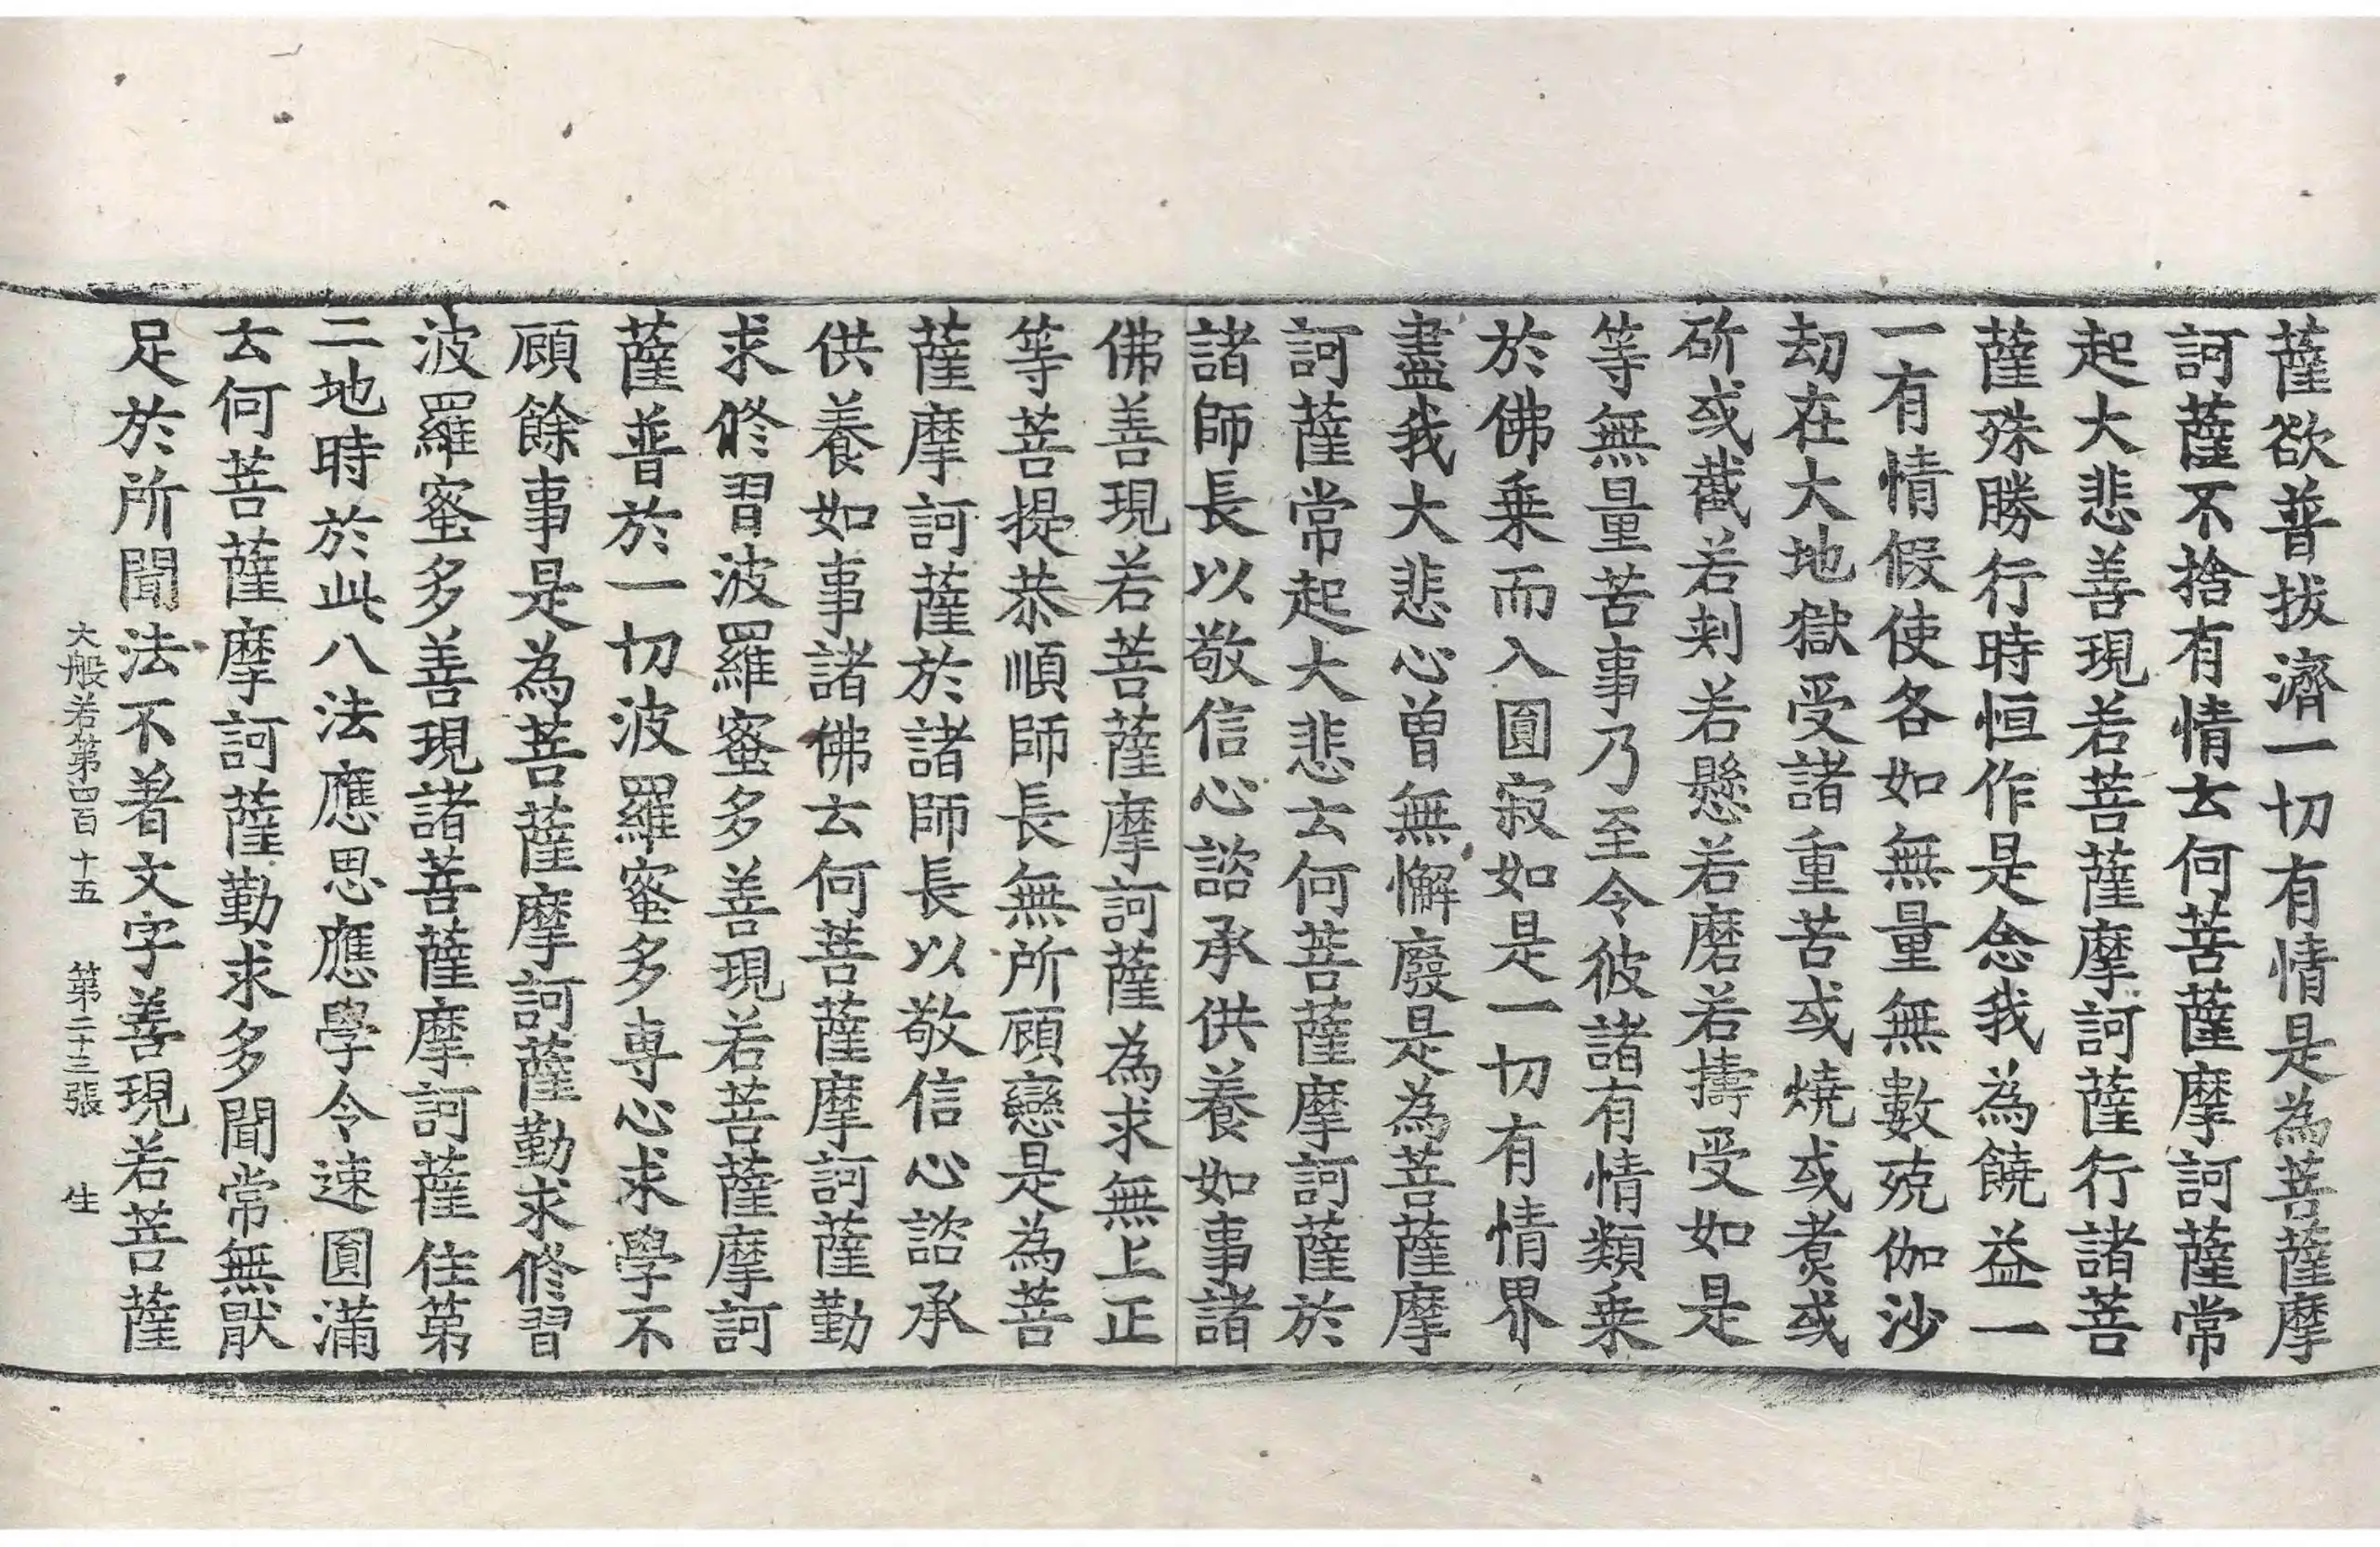 薩欲普拔濟一切有情是為菩薩摩
訶薩不捨有情云何菩薩摩訶薩常
起大悲善現若菩薩摩訶薩行諸菩
薩殊勝行時恒作是念我為饒益一
一有情假使各如無量無數殑伽沙
劫在大地獄受諸重苦或燒或煮或
斫或截若刺若懸若磨若擣受如是
等無量苦事乃至令彼諸有情類乗
於佛乗而入圓寂如是一切有情界
盡我大悲心曾無懈廢是為菩薩摩
訶薩常起大悲云何菩薩摩訶薩於
諸師長以敬信心諮承供養如事諸
佛善現若菩薩摩訶薩為求無上正
等菩提恭順師長無所顧戀是為菩
薩摩訶薩於諸師長以敬信心諮承
供養如事諸佛云何菩薩摩訶薩勤
求修習波羅蜜多善現若菩薩摩訶
薩普於一切波羅蜜多専心求學不
顧餘事是為菩薩摩訶薩勤求修習
波羅蜜多善現諸菩薩摩訶薩住第
二地時於此八法應思應學令速圓滿
云何菩薩摩訶薩勤求多聞常無猒
足於所聞法不著文字善現若菩薩
大般若第四百十五 第二十三張 生